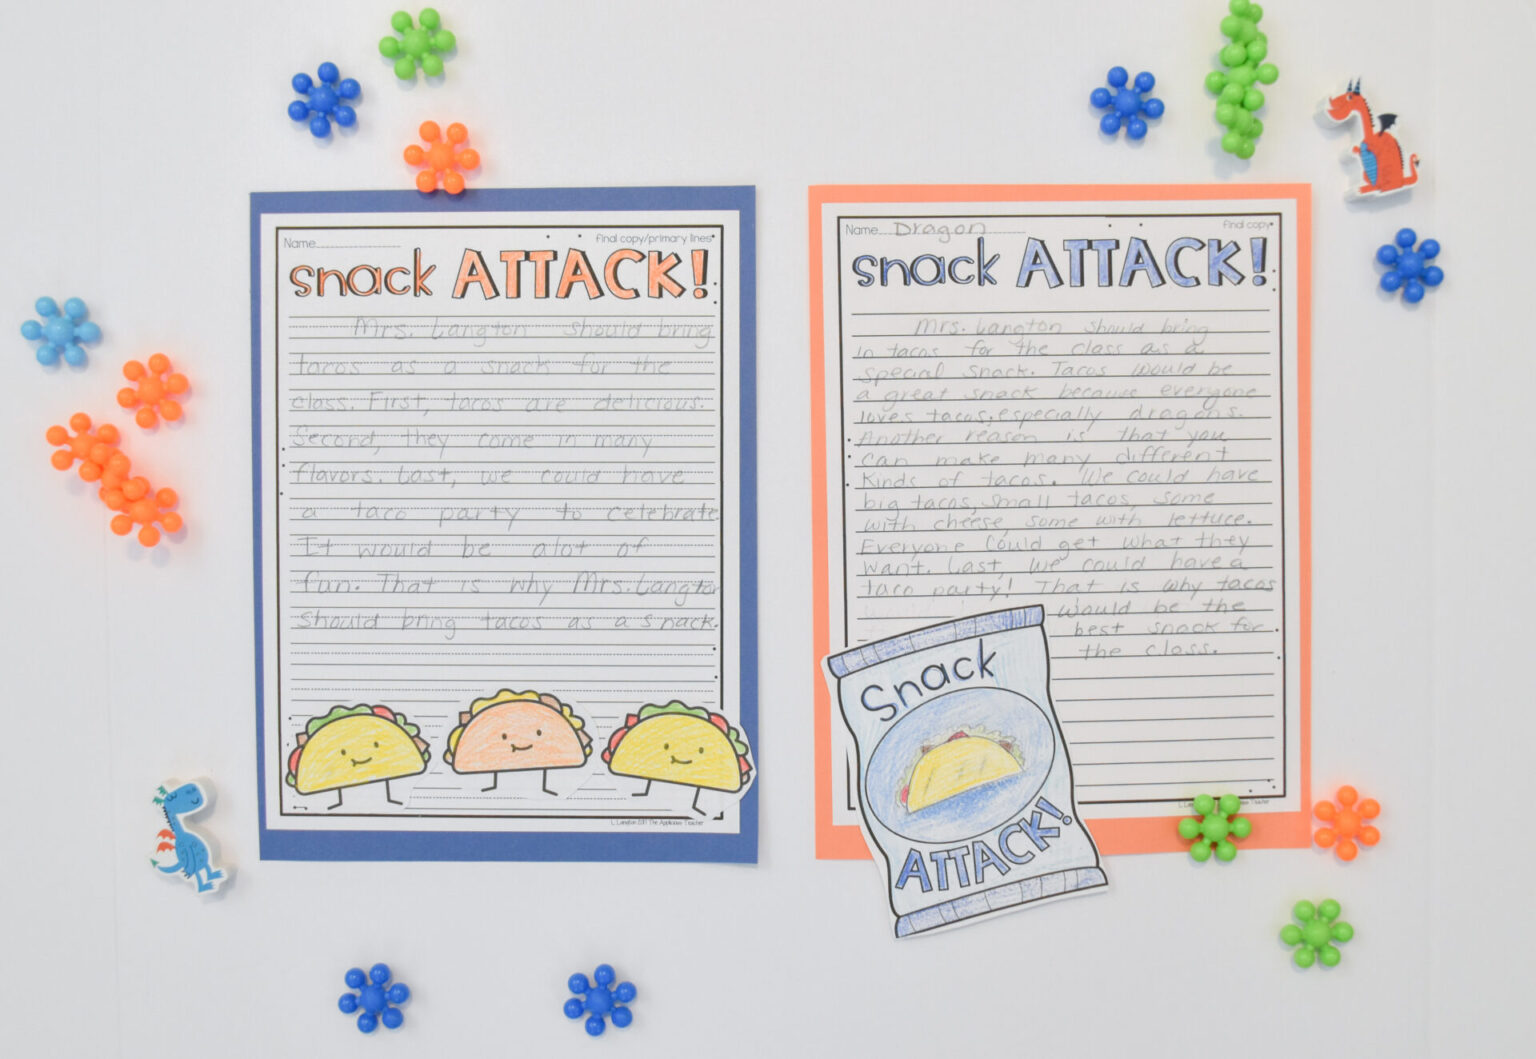 Name
final copy/primary lines
snack ATTACK!
Mrs. Langton should bring
tacos as a snack for the
class. First, tacos are delicious.
Second, they come in many
flavors. Last, we could have
a taco party to celebrate.
It would be alot of
fun. That is why Mrs. Langton
should bring tacos as a snack.
L. Langton 2019 The Applicious Teacher
Name Dragon
final copy
snack ATTACK!
Mrs. Langton should bring
in tacos for the class as a
special snack. Tacos would be
a great snack because everyone
loves tacos, especially dragons.
Another reason is that you
can make many different
kinds of tacos. We could have
big tacos, small tacos, some
with cheese, some with lettuce.
Everyone could get what they
want. Last, we could have a
taco party! That is why tacos
would be the
best snack for
the class.
Snack
ATTACK!
Applicious Teacher